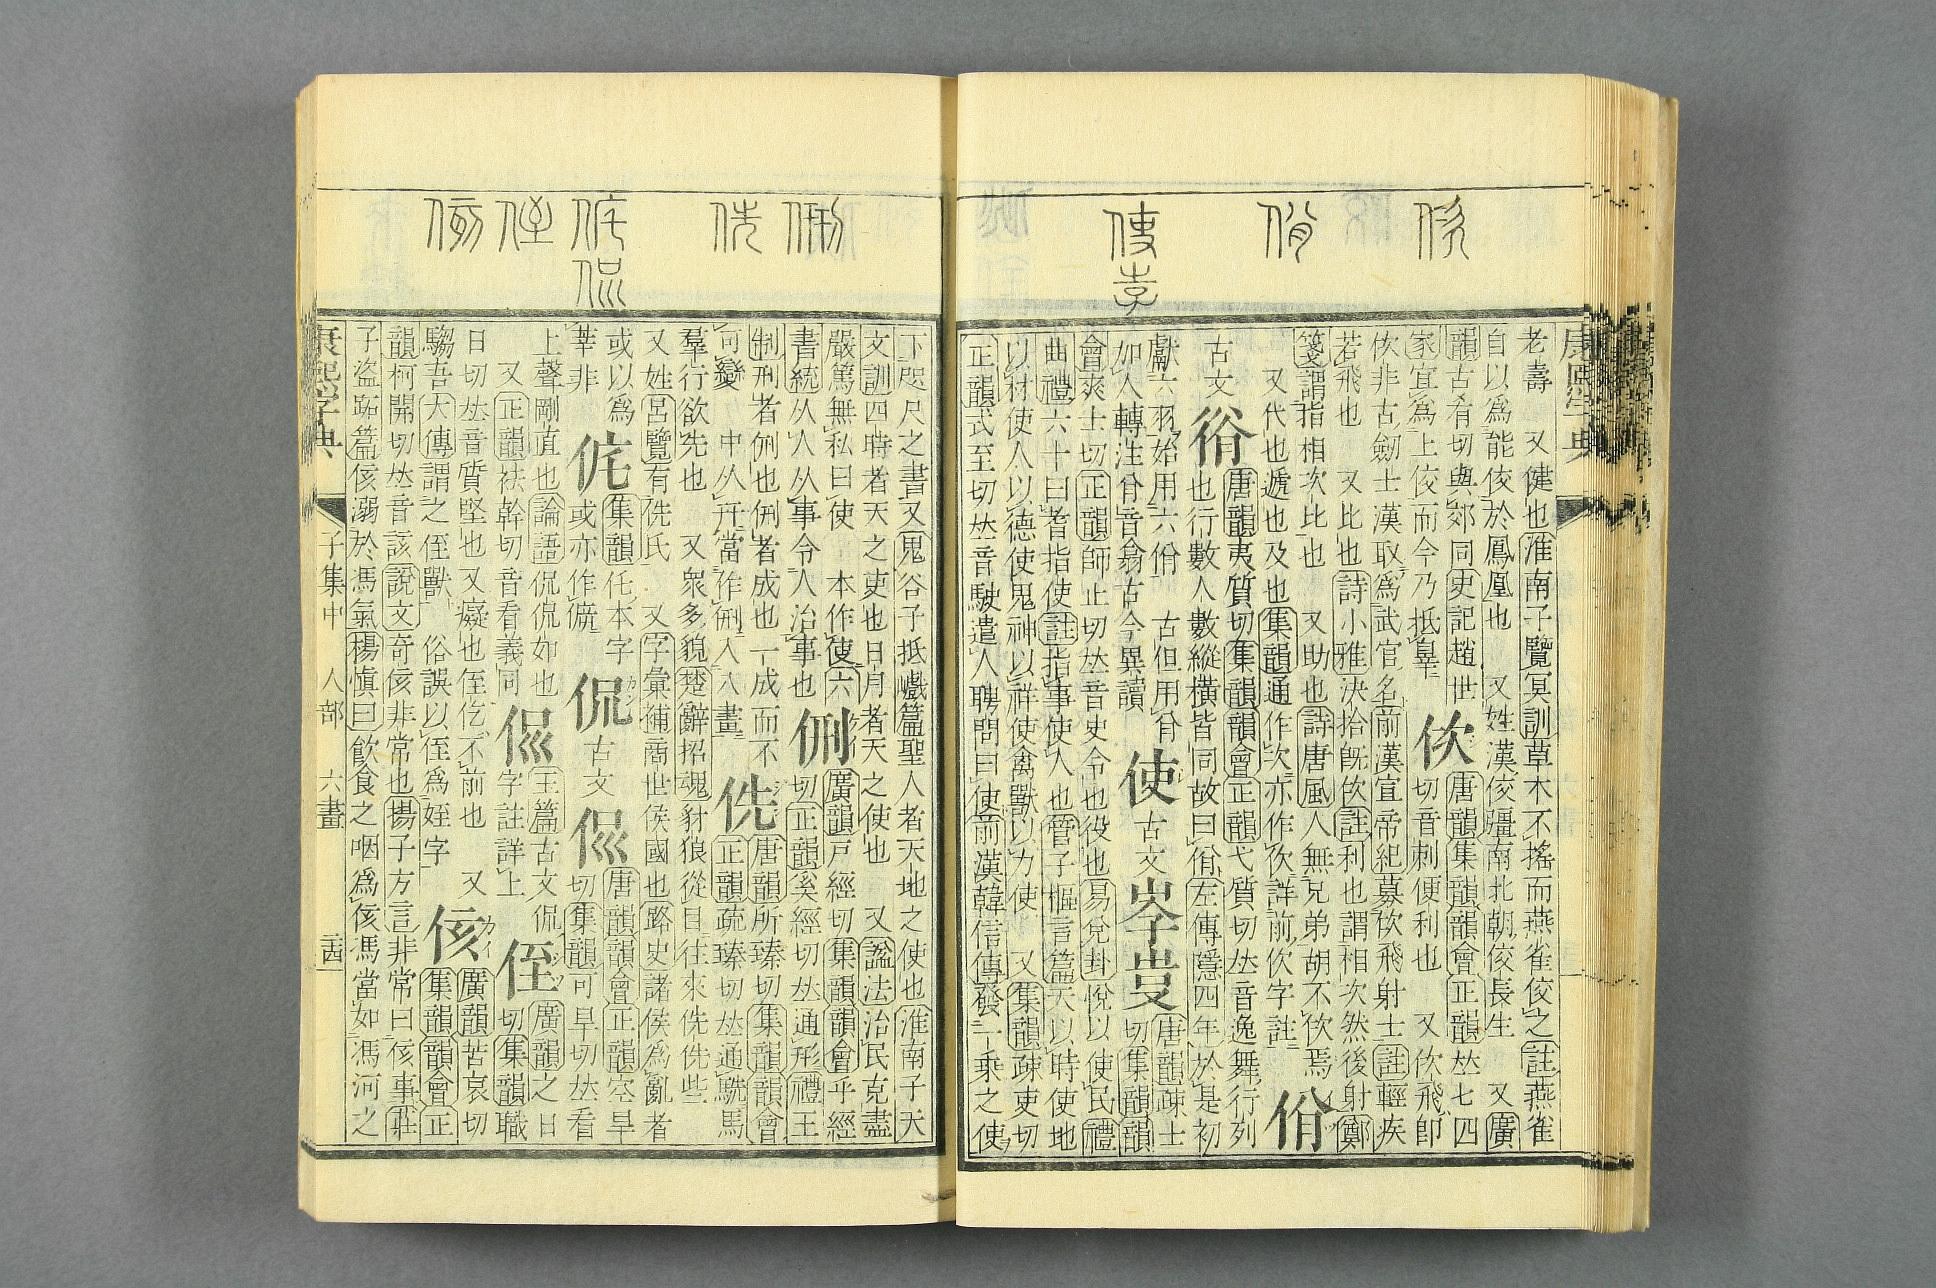 康熙字典
老壽 又健也淮南子覽冥訓草木不搖而燕雀佼之註燕雀
自以爲能佼於鳳凰也 又姓漢佼彊南北朝佼長生 又廣
韻古肴切與郊同史記趙世 佽 唐韻集韻韻會正韻𠀤七四
家宜爲上佼而今乃抵辠 切音刺便利也 又佽飛卽
佽非古劒士漢取爲武官名前漢宣帝紀募佽飛射士註輕疾
若飛也 又比也詩小雅決拾旣佽註利也謂相次然後射鄭
箋謂指相次比也 又助也詩唐風人無兄弟胡不佽焉 佾
又代也遞也及也集韻通作次亦作佽詳前佽字註
古文 唐韻夷質切集韻韻會正韻弋質切𠀤音逸舞行列
也行數人數縱橫皆同故曰佾左傳隱四年於是初
獻六羽始用六佾 古但用 使 古文 唐韻疎士
加人轉注 音翕古今異讀 切集韻韻
會爽士切正韻師止切𠀤音史令也役也易兌卦悅以使民禮
曲禮六十曰耆指使註指事使人也管子樞言篇天以時使地
以材使人以德使鬼神以祥使禽獸以力使 又集韻疎吏切
正韻式至切𠀤音駛遣人聘問曰使前漢韓信傳發一乘之使
下咫尺之書又鬼谷子抵巇篇聖人者天地之使也淮南子天
文訓四時者天之吏也日月者天之使也 又諡法治民克盡
嚴篤無私曰使 本作 六 侀 廣韻戸經切集韻韻會乎經
書統从人从事令人治事也 切正韻奚經切𠀤通形禮王
制刑者侀也侀者成也一成而不
可變 中从幵當作 入八畫 侁 唐韻所臻切集韻韻會
正韻疏臻切𠀤通駪馬
羣行欲先也 又衆多貌楚辭招魂豺狼從目往來侁侁些
又姓呂覽有侁氏 又字彙補商世侯國也路史諸侯爲亂者
或以爲 侂 集韻仛本字 侃 古文 㑽 唐韻韻會正韻空旱
莘非 或亦作 切集韻可旱切𠀤看
上聲剛直也論語侃侃如也 㑽 玉篇古文侃 侄 廣韻之日
又正韻祛幹切音看義同 字註詳上 切集韻職
日切𠀤音質堅也又癡也侄仡不前也 又 侅 廣韻苦哀切
騶吾大傳謂之侄獸 俗誤以侄爲姪字 集韻韻會正
韻柯開切𠀤音該說文奇侅非常也揚子方言非常曰侅事莊
子盜跖篇侅溺於馮氣楊愼曰飮食之咽爲侅馮當如馮河之
康熙字典 子集中 人部 六畫